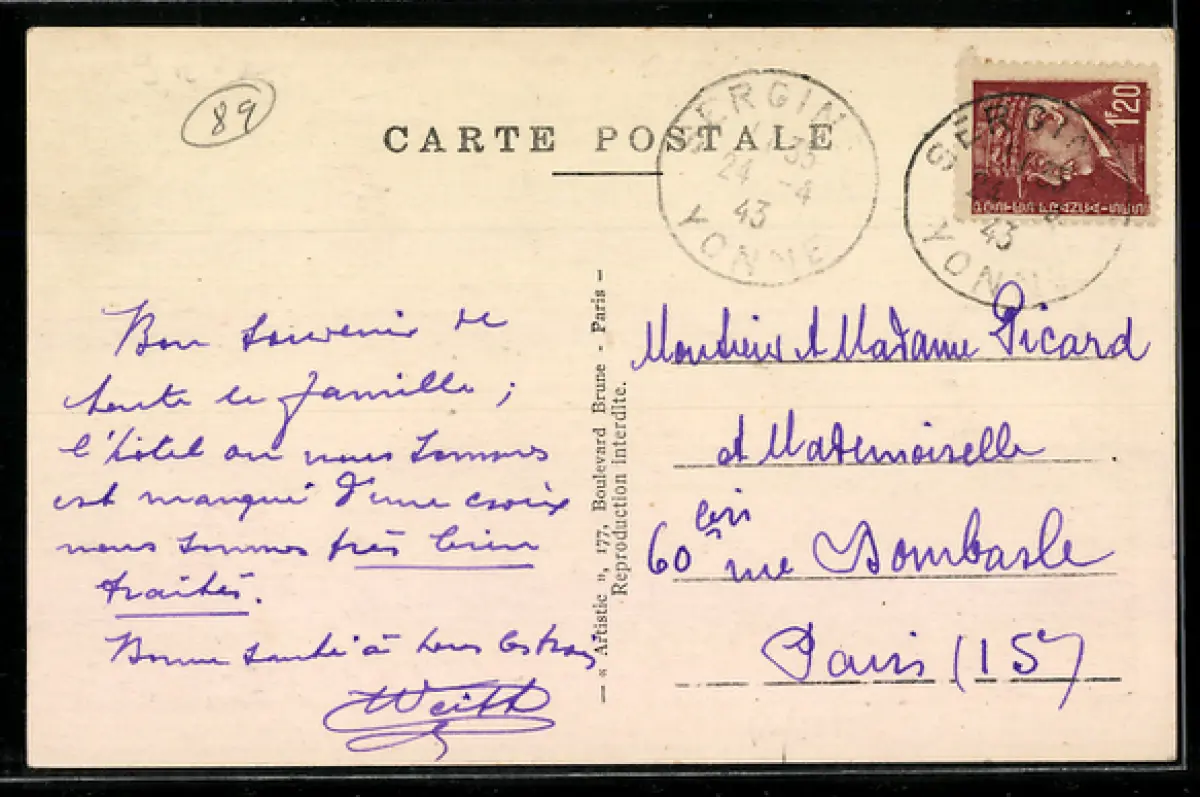 89
CARTE POSTALE
SERGIN
35
24 -4
43
YONNE
1F20
SERGIN
24 4
43
YONNE
Bon souvenir de
toute la famille ;
l'hôtel où nous sommes
est marqué d'une croix
nous sommes très bien
traités.
Bonne santé à tous les trois
Weith
— « Artistic », 177, Boulevard Brune - Paris —
Reproduction interdite.
Monsieur et Madame Picard
et Mademoiselle
60 rue Dombasle
Paris (15